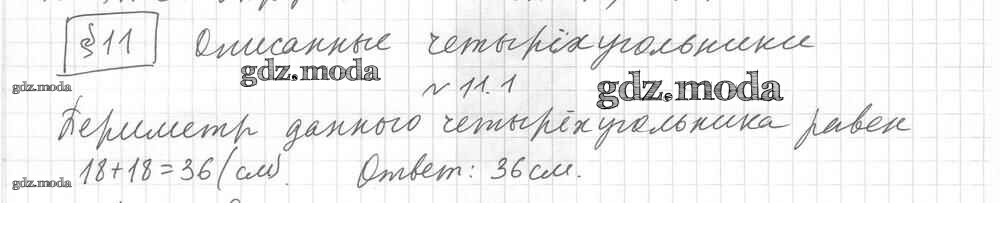 §11 Описанные четырёхугольники
gdz.moda
gdz.moda
№ 11.1
gdz.moda
Периметр данного четырёхугольника равен
18+18=36 (см). Ответ: 36 см.
gdz.moda